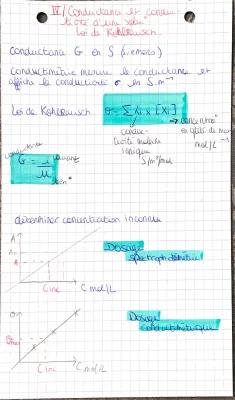 IV/ Conductance et conduc-
tivité d'une solu°
Loi de Kohlrausch
Conductance G en S (siemens)
Conductimètre mesure la conductance et
affiche la conductivité σ en S.m⁻¹
Loi de Kohlrausch
σ = Σ λi × [Xi]
→ concentra°
mol/L⁻¹
conduc-
tivité molaire
ionique
S/m²/mol
conductance
G = i/u
déterminer concentration inconnue
A
Cinc
C mol/L
Dosage
spectrophotométrie
σ
Cinc
C mol/L
Dosage
conductimétrique